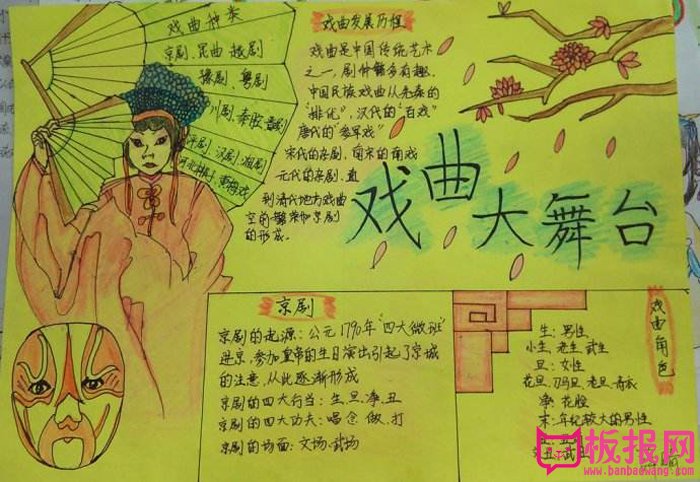 戏曲种类
京剧、昆曲、越剧
豫剧、粤剧
川剧、秦腔、晋剧
评剧、汉剧、湘剧
河北梆子、黄梅戏
戏曲发展历程
戏曲是中国传统艺术
之一,剧种繁多有趣,
中国民族戏曲从先秦的
"俳优",汉代的"百戏"
唐代的"参军戏"
宋代的杂剧,南宋的南戏
元代的杂剧,直
到清代地方戏曲
空前繁荣和京剧
的形成。
戏曲
大舞台
京剧
京剧的起源:公元1790年"四大徽班"
进京,参加皇帝的生日演出引起了京城
的注意,从此逐渐形成
京剧的四大行当:生、旦、净、丑
京剧的四大功夫:唱、念、做、打
京剧的场面:文场、武场
戏曲角色
生:男性
小生、老生、武生
旦:女性
花旦、刀马旦、老旦、青衣
净:花脸
末:年纪较大的男性
板报网
www.banbaowang.com